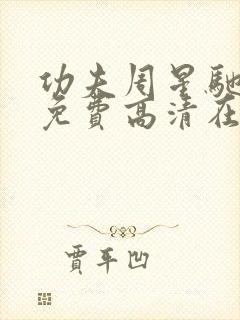 功夫周星驰
免費高清在
賈平凹